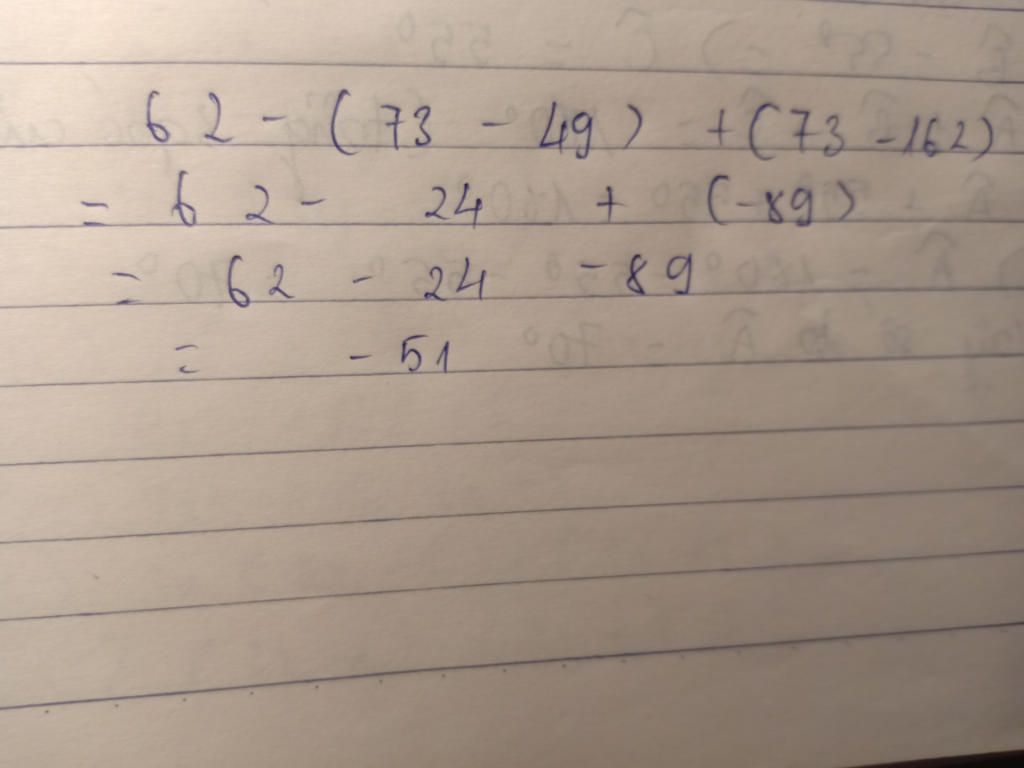 62 - (73 - 49) + (73 - 162)
= 62 - 24 + (-89)
= 62 - 24 - 89
= - 51